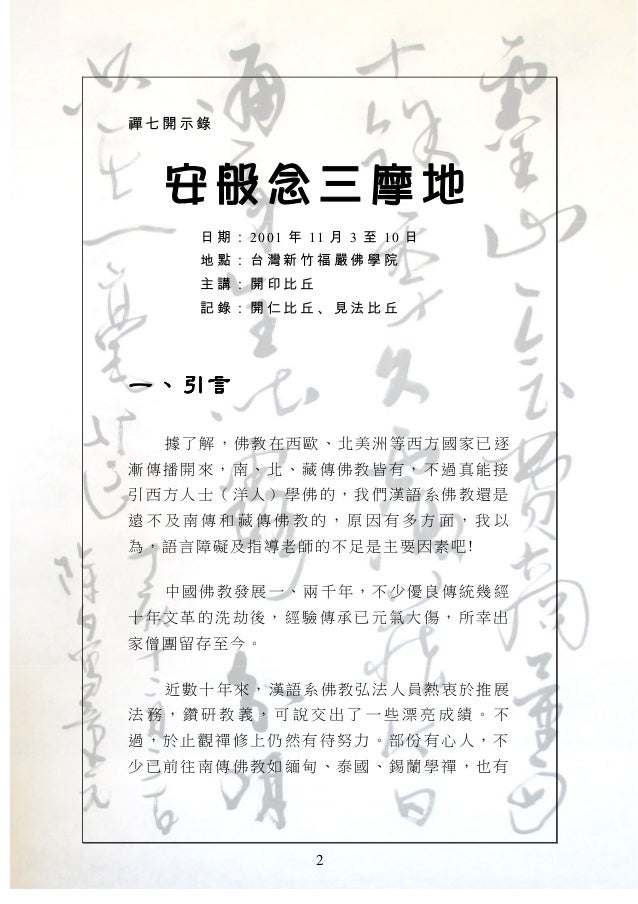 禪七開示錄
安般念三摩地
日期：2001 年 11 月 3 至 10 日
地點：台灣新竹福嚴佛學院
主講：開印比丘
記錄：開仁比丘、見法比丘
一、引言
據了解，佛教在西歐、北美洲等西方國家已逐
漸傳播開來，南、北、藏傳佛教皆有，不過真能接
引西方人士（洋人）學佛的，我們漢語系佛教還是
遠不及南傳和藏傳佛教的，原因有多方面，我以
為，語言障礙及指導老師的不足是主要因素吧!
中國佛教發展一、兩千年，不少優良傳統幾經
十年文革的洗劫後，經驗傳承已元氣大傷，所幸出
家僧團留存至今。
近數十年來，漢語系佛教弘法人員熱衷於推展
法務，鑽研教義，可說交出了一些漂亮成績。不
過，於止觀禪修上仍然有待努力。部份有心人，不
少已前往南傳佛教如緬甸、泰國、錫蘭學禪，也有
2